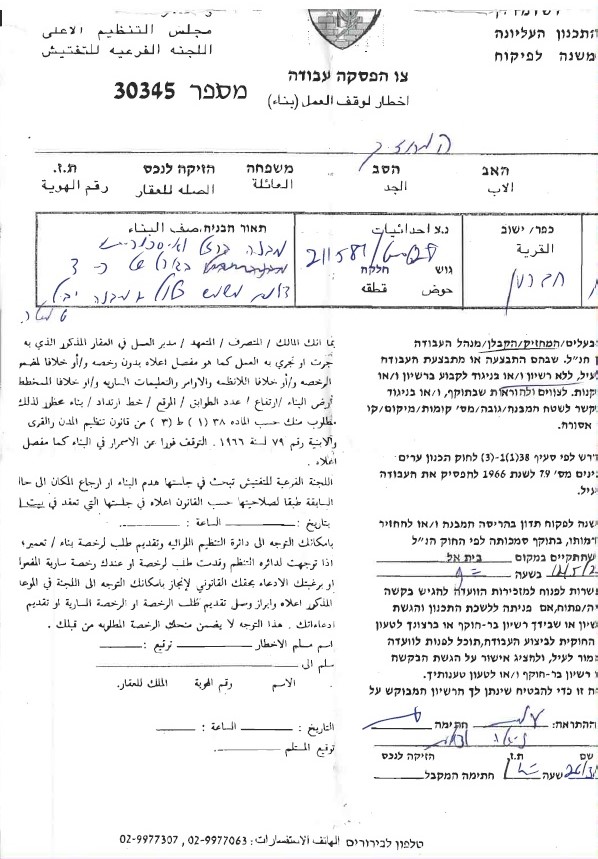 מועצת התכנון העליונה
משנה לפיקוח
مجلس التنظيم الاعلى
اللجنه الفرعيه للتفتيش
צו הפסקה עבודה
اخطار لوقف العمل (بناء)
מספר 30345
המחזיק
האב הסב משפחה הזיקה לנכס ת.ז.
الاب الجد العائلة الصله للعقار رقم الهوية
כפר/ ישוב נ.צ احداثيات תאור הבניה.صف البناء
القرية גוש חלקה
حوض قطعه
חברון
בעלים/המחזיק/הקבלן/מנהל העבודה
חנ"ל. שבהם התבצעה או מתבצעת העבודה
עיל, ללא רשיון ו/או בניגוד לקבוע ברשיון ו/או
קנות. לצווים ולהוראות שבתוקף, ו/או בניגוד
קשר לשטח המבנה/גובה/מס' קומות/מיקום/קו
אסורה.
דרש לפי סעיף 38(1)-(3) לחוק תכנון ערים
בינים מס' 79 לשנת 1966 להפסיק את העבודה
עיל.
שנה לפקוח תדון בהריסת המבנה ו/או להחזיר
דמותו, בתוקף סמכותה לפי החוק הנ"ל
שתתקיים במקום בית אל
בשעה
שרות לפנות למזכירות הוועדה להגיש בקשה
יה/פתוח,אם פניתה ללשכת התכנון והגשת
שיון או שבידך רשיון בר-תוקף או ברצונך לטעון
החוקית לביצוע העבודה,תוכל לפנות לוועדה
מור לעיל, ולהציג אישור על הגשת הבקשה
רשיון בר-תוקף ו/או לטעון טענותיך.
ה זו כדי להבטיח שינתן לך הרשיון המבוקש על
ההתראה: חתימה
שם ת.ז הזיקה לנכס
שעה חתימה המקבל
بما انك المالك / المتصرف / المتعهد / مدير العمل في العقار المذكور الذي به
جرت او تجري به العمل كما هو مفصل اعلاه بدون رخصه و/أو خلافا لمضمون
الرخصه و/أو خلافا للانظمه والاوامر والتعليمات الساريه و/او خلافا للمخطط
أرض البناء /ارتفاع / عدد الطوابق / الموقع / خط ارتداد / بناء محظور لذلك
مطلوب منك حسب الماده ٣٨ (١) ط (٣) من قانون تنظيم المدن والقرى
والابنية رقم ٧٩ لسنة ١٩٦٦. التوقف فورا عن الاسمرار في البناء كما مفصل
اعلاه .
اللجنة الفرعية للتفتيش تبحث في جلستها هدم البناء او ارجاع المكان الى حالته
السابقة طبقا لصلاحيتها حسب القانون اعلاه في جلستها التي تعقد في
بتاريخ : الساعة :
بامكانك التوجه الى دائرة التنظيم اللوائيه وتقديم طلب لرخصة بناء / تعمير؛
اذا توجهت لدائره التنظيم وقدمت طلب لرخصة او عندك رخصة سارية المفعول
او برغبتك الادعاء بحقك القانوني لإنجاز بامكانك التوجه الى اللجنة في الموعد
المذكور اعلاه وابراز وصل تقديم طلب الرخصة او الرخصة السارية او تقديم
ادعاءاتك . هذا التوجه لا يضمن منحك الرخصة المطلوبه من قبلك .
اسم مسلم الاخطار توقيع :
سلم الى
الاسم رقم الهوية الملك للعقار.
التاريخ : الساعة :
توقيع المستلم
טלפון לבירורים الهاتف الاستفسارات : 02-9977063, 02-9977307